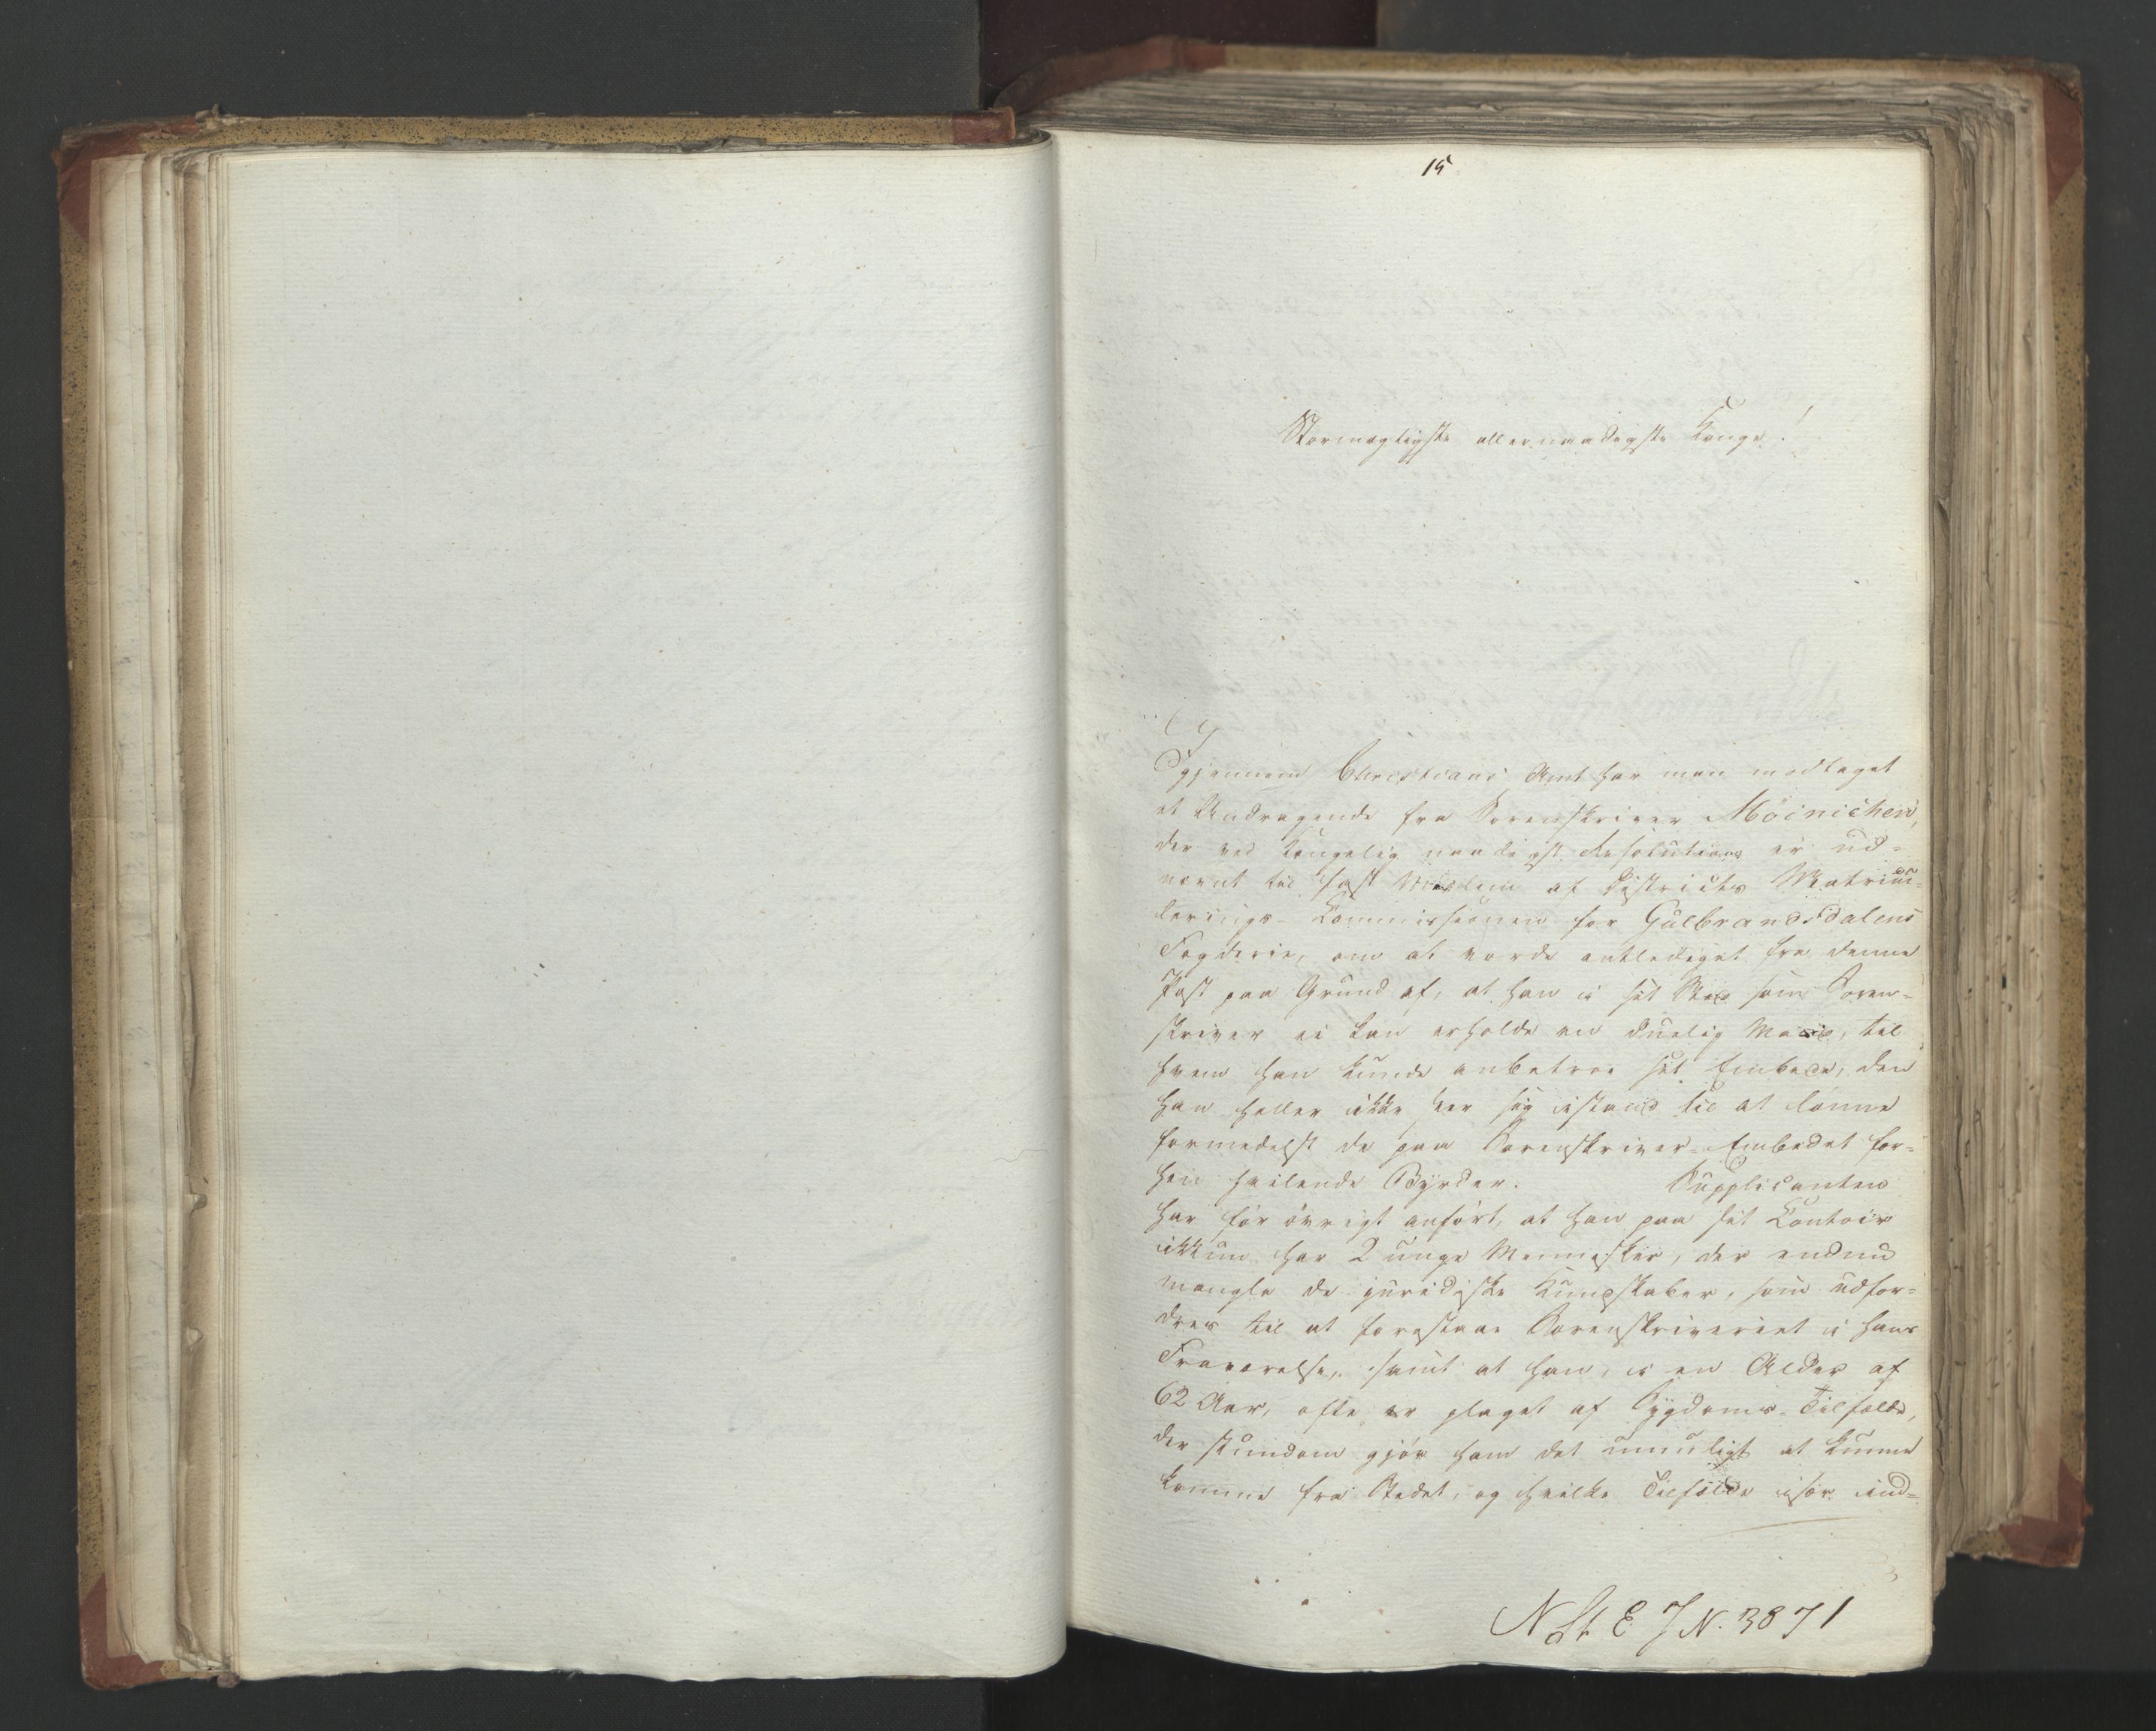 15
Stormægtigste allernaadigste Konge!
Igjennem Christians Amt har man modtaget
et Andragende fra Sorenskriver Möinichen,
der ved Kongelig naadigst Resolution er ud-
nævnt til fast Medlem af Districts Matricu-
lerings-Kommissionen for Gulbrandsdalens
Fogderie, om at vorde entlediget fra denne
Post paa Grund af, at han i sit Sted som Soren-
skriver ei kan erholde en duelig Mand, til
hvem han kunde anbetroe sit Embede, den
han heller ikke seer sig istand til at lønne
formedelst de paa Sorenskriver-Embedet for-
hen hvilende Byrder. Supplicanten
har för övrigt anfört, at han paa sit Contoir
ikkun har 2 unge Mennesker, der endnu
mangle de juridiske Kundskaber, som udfor-
dres til at forestaae Sorenskriveriet i hans
Fraværelse, samt at han, i en Alder af
62 Aar, ofte er plaget af Sygdoms-Tilfælde,
der stundom gjör ham det umuligt at kunne
komme fra Stedet, og hvilke Tilfælde især ind-
N. 3871